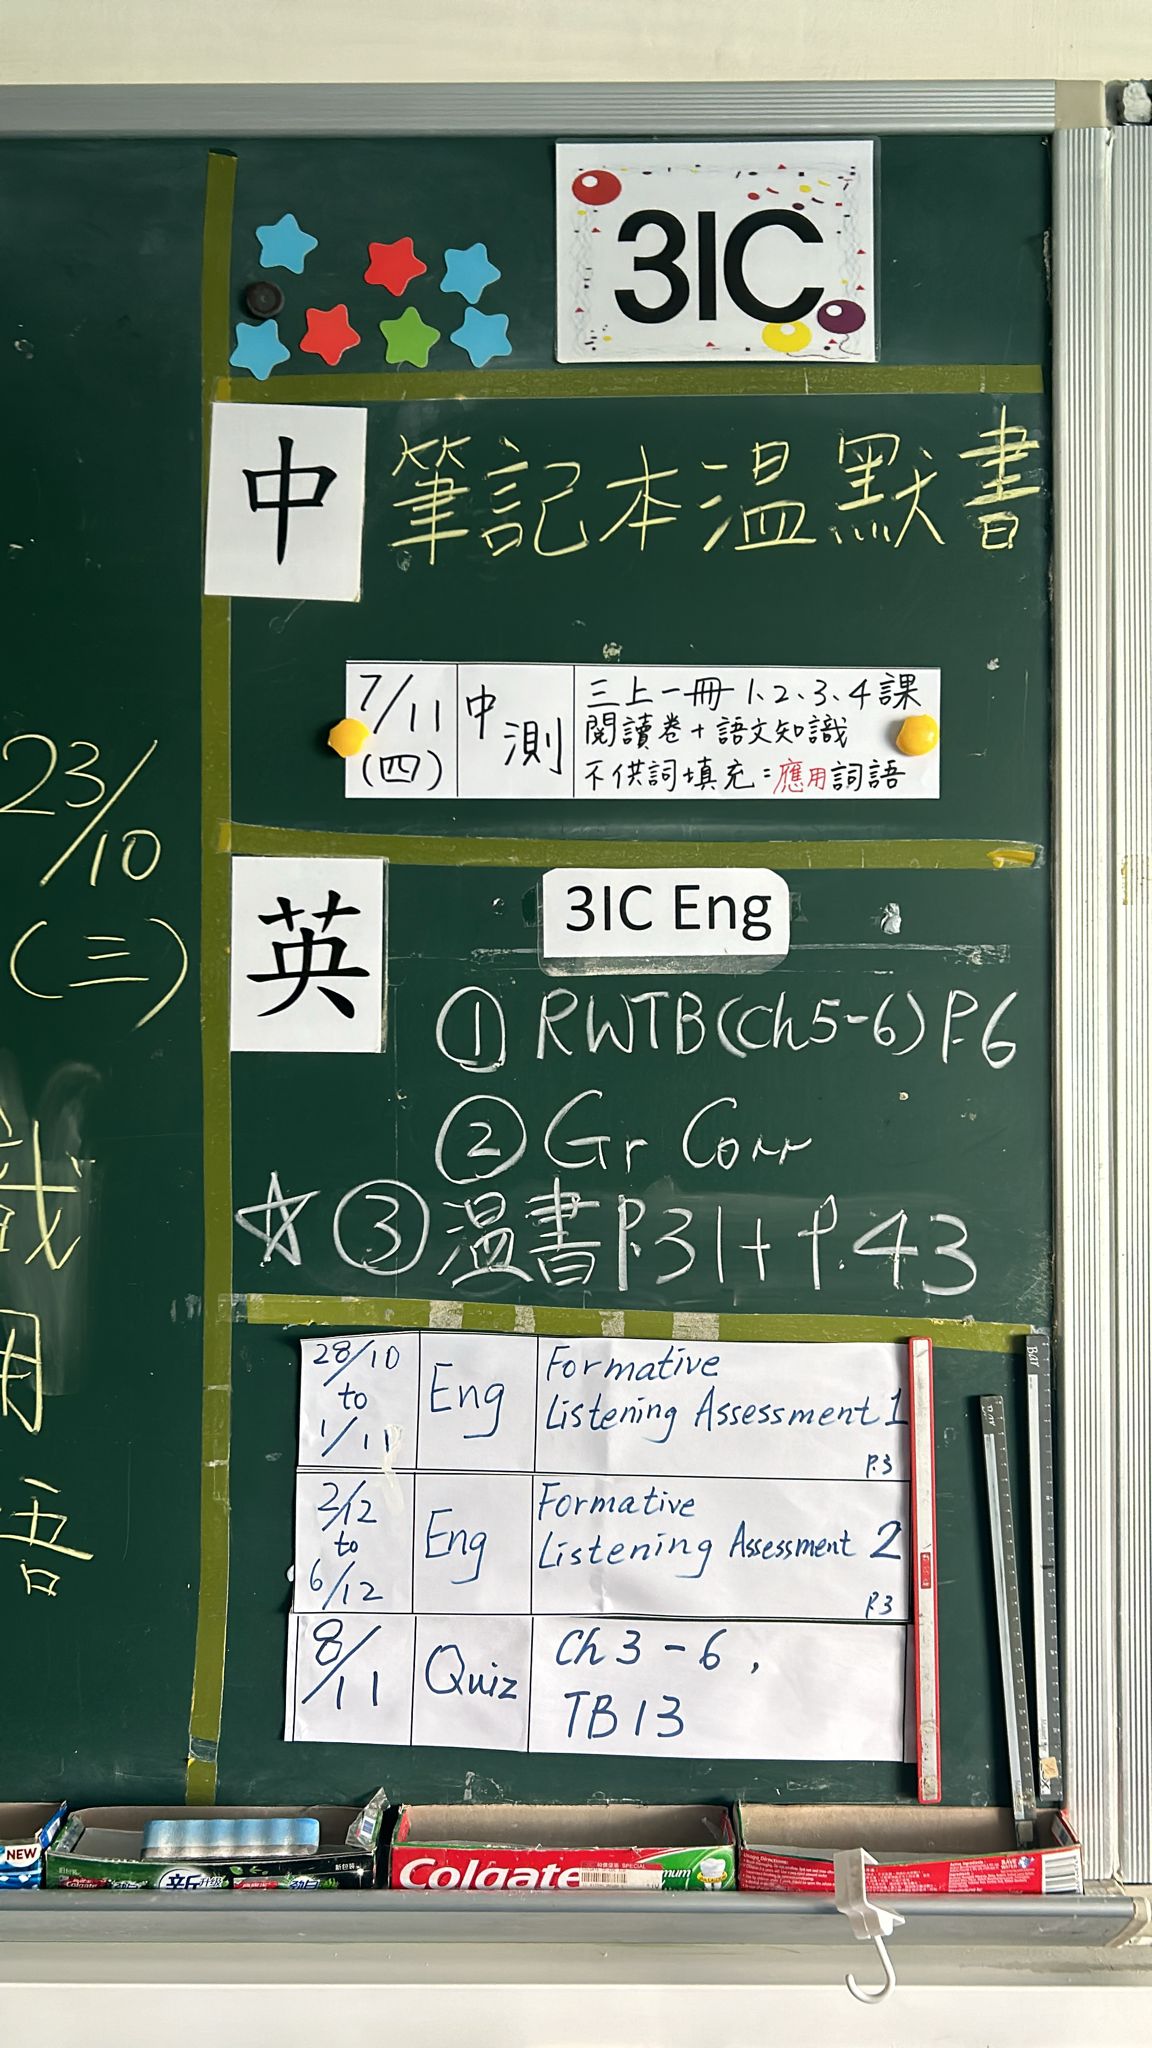 3IC
中
筆記本溫默書
7/11
(四)
中測
三上一冊 1、2、3、4課
閱讀卷 + 語文知識
不供詞填充 = 應用詞語
23/10
(三)
英
3IC Eng
① RWTB(Ch5-6) P.6
② Gr Corr
☆ ③ 溫書 P.31 + P.43
28/10
to
1/11
Eng
Formative
Listening Assessment 1
P.3
2/12
to
6/12
Eng
Formative
Listening Assessment 2
P.3
8/11
Quiz
Ch 3 - 6 ,
TB 13
NEW
Colgate